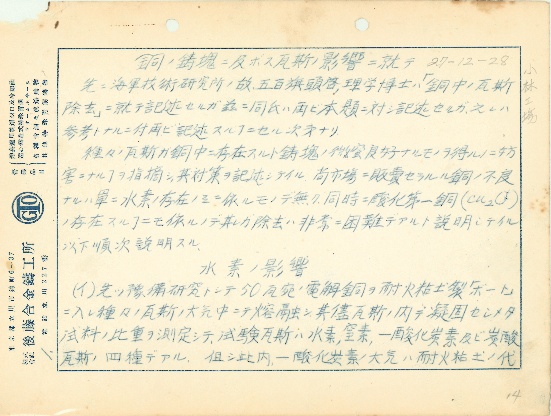 銅ノ鋳塊ニ及ボス瓦斯ノ影響ニ就テ 27-12-28
先ニ海軍技術研究所ノ故、五百旗頭啓、理学博士ハ「銅中ノ瓦斯
除去」ニ就テ記述セルガ茲ニ同氏ハ再ビ本題ニ対シ記述セルガ、之レハ
参考トナルニ付再ビ記述スルコトニセル次第ナリ
種々ノ瓦斯ガ銅中ニ存在スルト鋳塊ノ 良好ナルモノヲ得ルノニ妨
害ニナルコトヲ指摘シ其対策ヲ記述シテイル 尚市場ニ販売セラルル銅ノ不良
ナルハ単ニ水素ノ存在ノミニ依ルモノデ無ク、同時ニ酸化第一銅
ノ存在スルコトニモ依ルノデ其レガ除去ハ非常ニ困難デアルト説明シテイル
以下順次説明スル
水素ノ影響
(イ) 先ヅ予備研究トシテ50瓦宛ノ電解銅ヲ耐火粘土製「ボート」
ニ入レ種々ノ瓦斯ノ大気中ニテ熔融シ其儘瓦斯ノ内デ凝固セシメタ
試料ノ比重ヲ測定シテ、試験瓦斯ハ水素、窒素、一酸化炭素及ビ炭酸
瓦斯ノ四種デアル、但シ此内、一酸化炭素ノ大気ハ耐火粘土ノ代
小林工場
後藤合金鋳工所
14